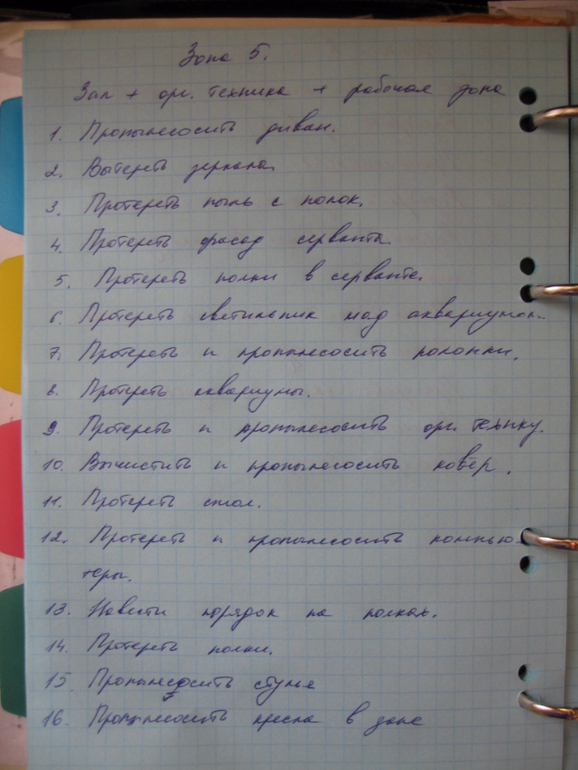 Зона 5.
Зал + орг. техника + рабочая зона
1. Пропылесосить диван.
2. Вытереть зеркала.
3. Протереть пыль с полок.
4. Протереть фасад серванта.
5. Протереть полки в серванте.
6. Протереть светильник над аквариумом.
7. Протереть и пропылесосить колонки.
8. Протереть аквариумы.
9. Протереть и пропылесосить орг. технику.
10. Вычистить и пропылесосить ковёр.
11. Протереть стол.
12. Протереть и пропылесосить компью-
теры.
13. Навести порядок на полках.
14. Протереть полки.
15 Пропылесосить стулья
16. Пропылесосить кресла в зале